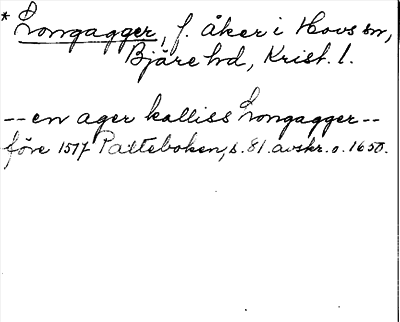 * Longagger, f. åker i Hovs sn,
Bjäre hd, Krist. l.
-- en ager kalliss Longagger --
före 1517 Palteboken, s. 81. avskr. o. 1650.